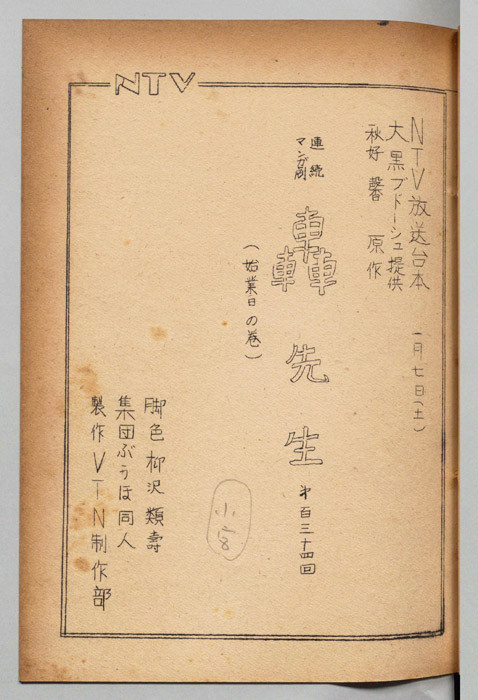 NTV
NTV放送台本 一月七日(土)
大黒ブドーシュ提供
秋好馨 原作
連続
マンガ劇
轟先生 第百三十四回
(始業日の巻)
脚色 柳沢類寿
集団ぶうほ同人
製作VTN制作部